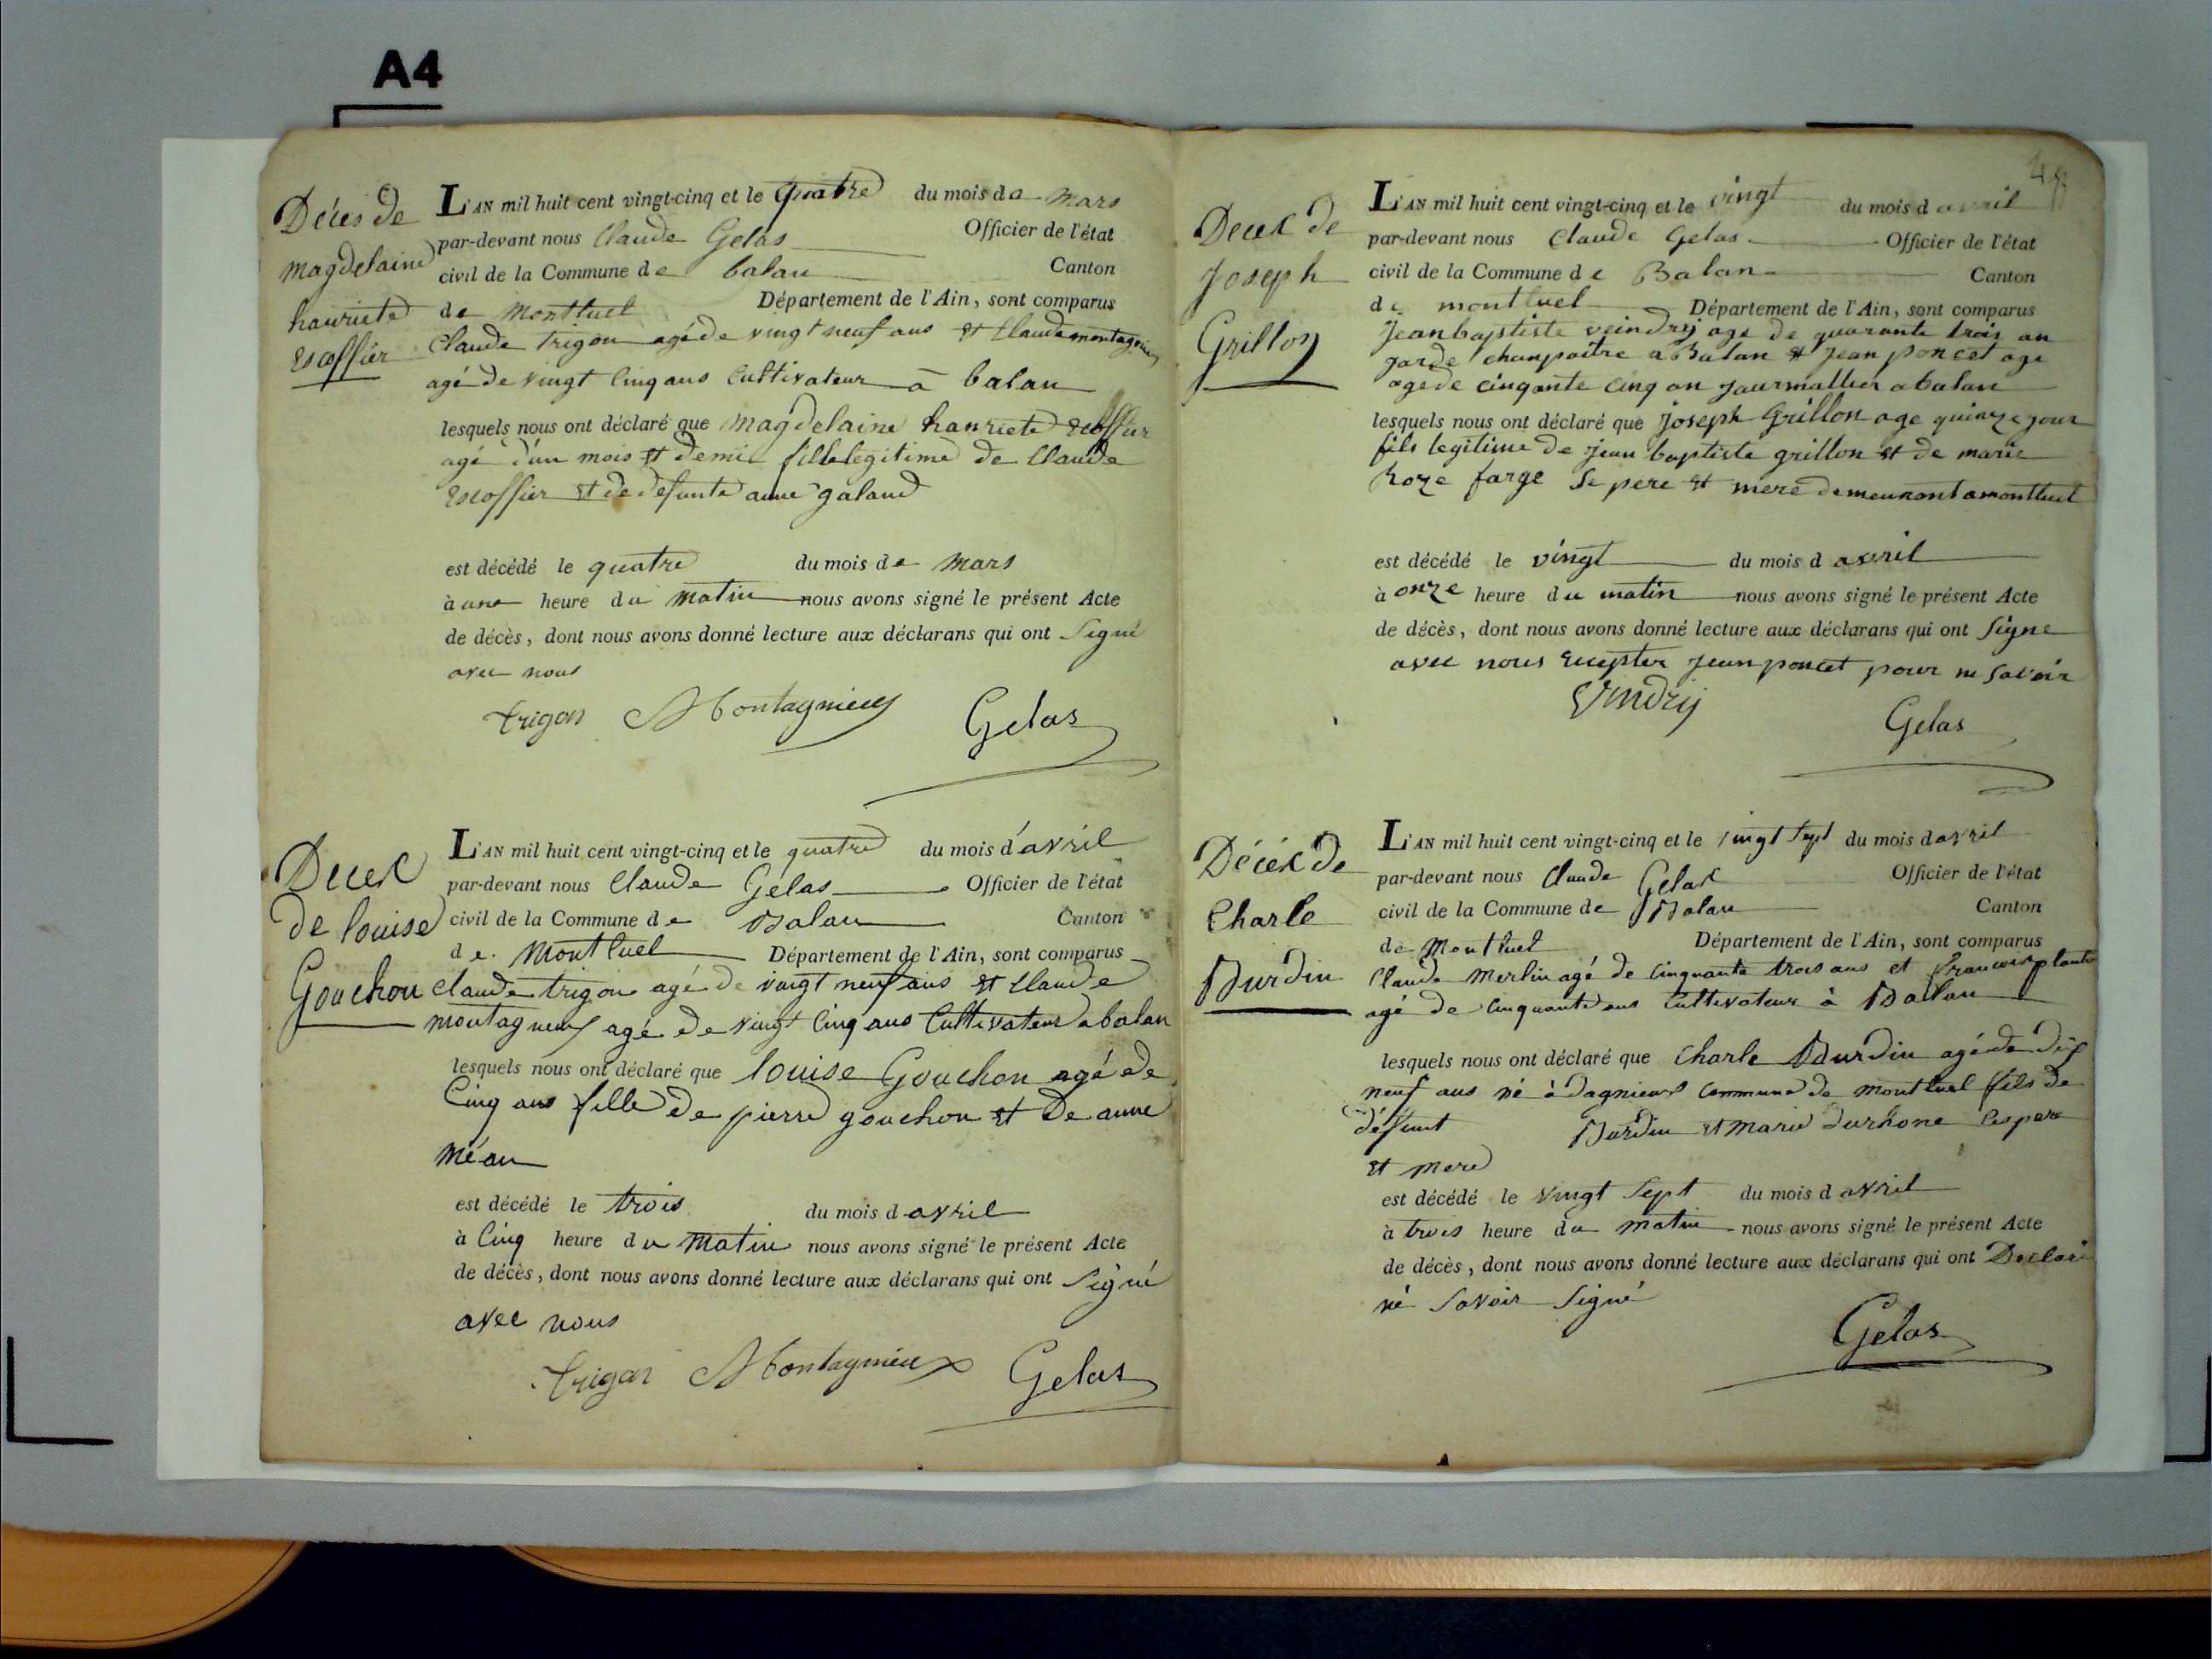 A4
Décès de
magdelaine
hauriete
escoffier
L'AN mil huit cent vingt-cinq et le quatre du mois de mars
par-devant nous Claude Gelas Officier de l'état
civil de la Commune de balan Canton
de Montluel Département de l'Ain, sont comparus
Claude trigon agé de vingt neuf ans et Claude montagnieux
agé de vingt Cinq ans Cultivateur a balan
lesquels nous ont déclaré que magdelaine hanriete escoffier
agé d'un mois et demi fille legitime de Claude
escoffier et de defunte anne galand
est décédé le quatre du mois de mars
à une heure du matin nous avons signé le présent Acte
de décès, dont nous avons donné lecture aux déclarans qui ont Signé
avec nous
trigon Montagnieux Gelas
Deces
de louise
Gouchon
L'AN mil huit cent vingt-cinq et le quatre du mois d'avril
par-devant nous Claude Gélas Officier de l'état
civil de la Commune de Balan Canton
de. Montluel Département de l'Ain, sont comparus
claude trigon agé de vingt neuf ans et Claude
montagneux agé de vingt Cinq ans Cultivateur a balan
lesquels nous ont déclaré que louise Gouchon agé de
Cinq ans fille de pierre gouchon et de anne
méan
est décédé le trois du mois d avril
à Cinq heure du Matin nous avons signé le présent Acte
de décès, dont nous avons donné lecture aux déclarans qui ont Signé
avec nous
trigon Montagnieux Gelas
Deces de
Joseph
Grillon
L'AN mil huit cent vingt-cinq et le vingt du mois d avril
par-devant nous Claude Gelas Officier de l'état
civil de la Commune de Balan Canton
de montluel Département de l'Ain, sont comparus
Jean baptiste veindrij age de quarante trois an
garde champaitre a Balan et Jean poncet age
age de cinqante cinq an Journallier a balan
lesquels nous ont déclaré que Joseph Grillon age quinze jour
fils legitime de jean baptiste grillon et de marie
Roze farge Se pere et mere demeuront a montluel
est décédé le vingt du mois d avril
à onze heure du matin nous avons signé le présent Acte
de décès, dont nous avons donné lecture aux déclarans qui ont Signe
avec nous excepter jean poncet pour ne savoir
Vindrij Gelas
Décés de
Charle
Burdin
L'AN mil huit cent vingt-cinq et le vingt Sept du mois d avril
par-devant nous Claude Gelas Officier de l'état
civil de la Commune de Balan Canton
de Montluel Département de l'Ain, sont comparus
Claude Merlin agé de Cinquante trois ans et francois plante
agé de Cinquante ans Cultivateur à Ballan
lesquels nous ont déclaré que Charle Burdin agé de dix
neuf ans né à dagnieux Commune de montluel fils de
défunt Burdin et marie durhone Ces pere
et mere
est décédé le vingt Sept du mois d avril
à trois heure du matin nous avons signé le présent Acte
de décès, dont nous avons donné lecture aux déclarans qui ont Declaré
né Savoir Signé
Gelas